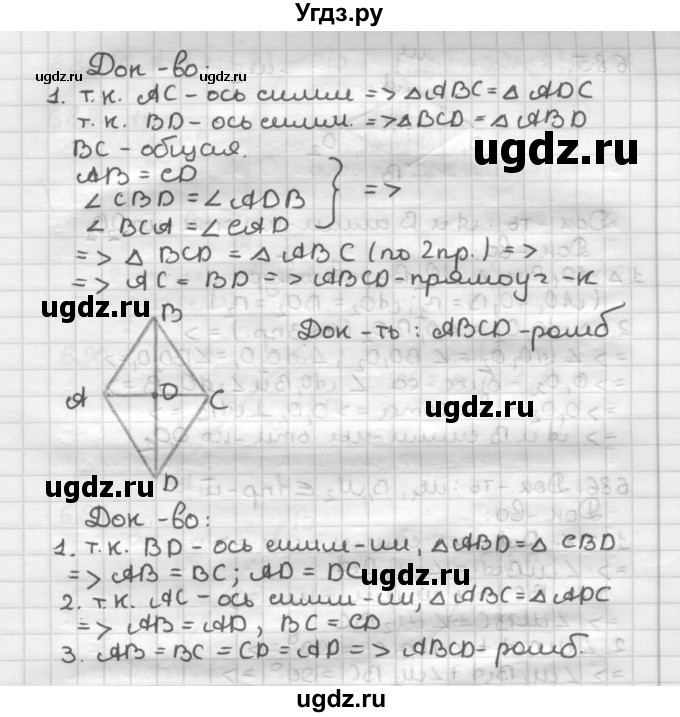 Угдз.ру
Док-во:
1. т.к. AC - ось симм => △ ABC = △ ADC
т.к. BD - ось симм. => △BCD = △ ABD
BC - общая.
AB = CD
∠ CBD = ∠ ADB
∠ BCA = ∠ CAD
} =>
=> △ BCD = △ ABC (по 2пр.) =>
=> AC = BD => ABCD - прямоуг-к
B
Док-ть: ABCD - ромб
A
O
C
D
Док-во:
1. т.к. BD - ось симм-ии, △ABD = △ CBD
=> AB = BC; AD = DC
2. т.к. AC - ось симм-ии, △ABC = △ ADC
=> AB = AD, BC = CD
3. AB = BC = CD = AD => ABCD - ромб.
ugdz.ru
ugdz.ru
ugdz.ru
ugdz.ru
ugdz.ru
ugdz.ru
ugdz.ru
ugdz.ru
ugdz.ru
ugdz.ru